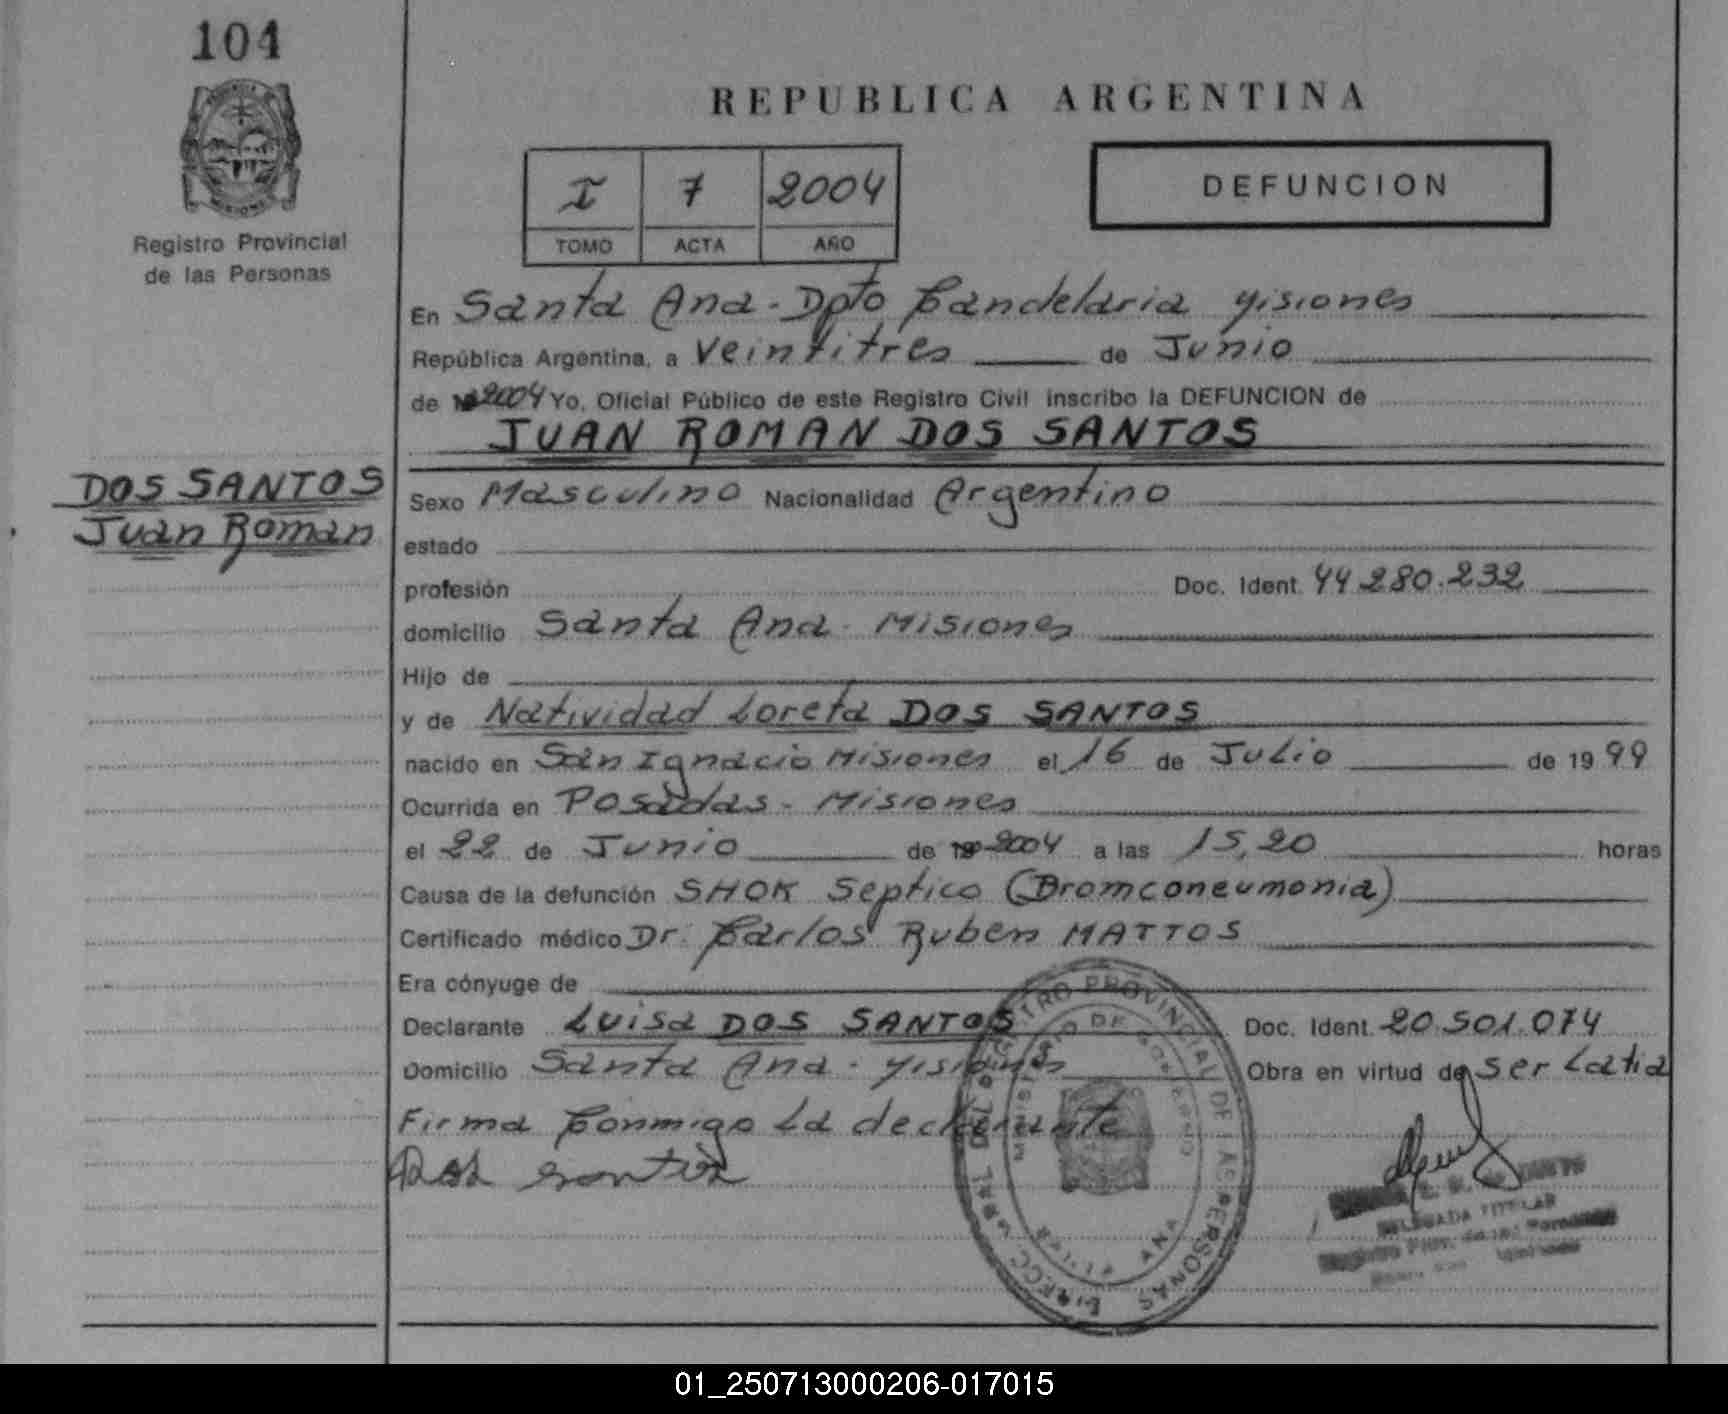 104
Registro Provincial
de las Personas
REPUBLICA ARGENTINA
I 7 2004
TOMO ACTA AÑO
DEFUNCION
En Santa Ana - Dpto Candelaria Misiones
República Argentina, a Veintitres de Junio
de 2004 Yo, Oficial Público de este Registro Civil inscribo la DEFUNCION de
JUAN ROMAN DOS SANTOS
DOS SANTOS
Juan Roman
Sexo Masculino Nacionalidad Argentino
estado
profesión Doc. Ident. 44 280.232
domicilio Santa Ana - Misiones
Hijo de
y de Natividad Loreta DOS SANTOS
nacido en San Ignacio Misiones el 16 de Julio de 1999
Ocurrida en Posadas - Misiones
el 22 de Junio de 2004 a las 15,20 horas
Causa de la defunción SHOK Septico (Bromconeumonia)
Certificado médico Dr. Carlos Ruben MATTOS
Era cónyuge de
Declarante Luisa DOS SANTOS Doc. Ident. 20.501.074
Domicilio Santa Ana - Misiones Obra en virtud de ser La tia
Firma Conmigo La declarante
REGISTRO PROVINCIAL DE LAS PERSONAS
MINISTERIO DE GOBIERNO
ANA
DELEGADA TITULAR
01_250713000206-017015